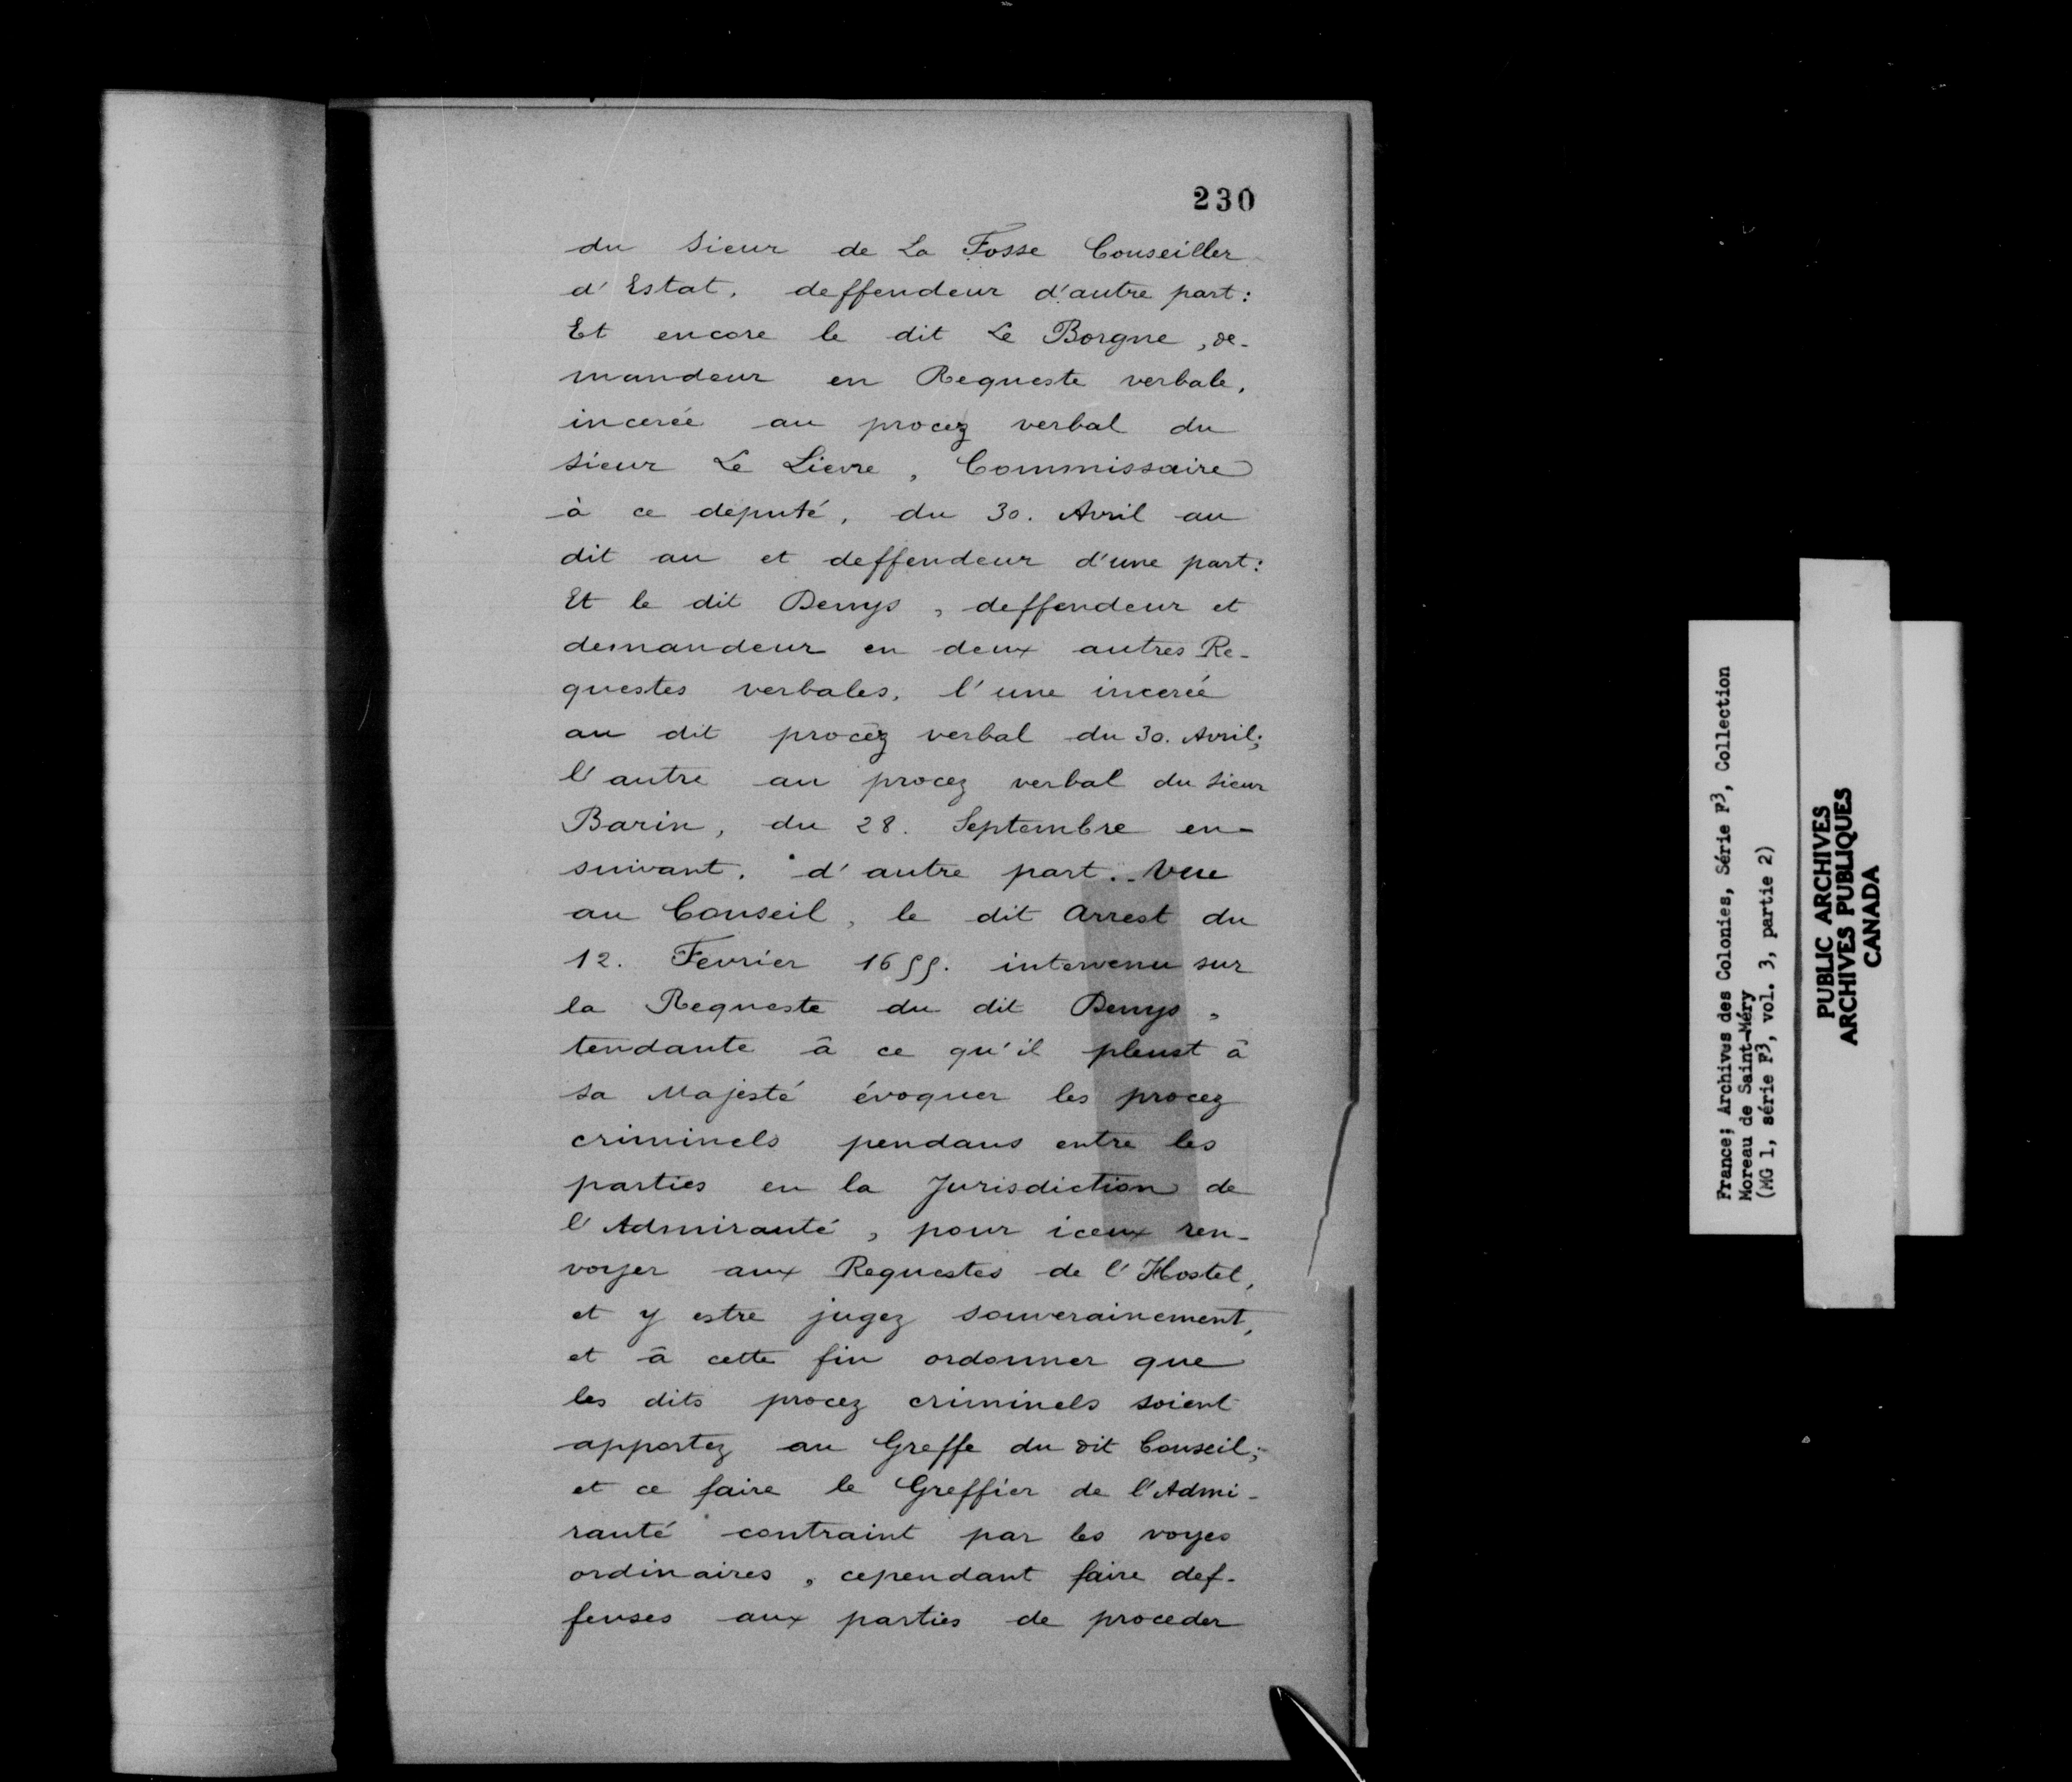 230
du Sieur de La Fosse Conseiller
d'Estat, deffendeur d'autre part:
Et encore le dit Le Borgne, de-
mandeur en Requeste verbale,
incerée au procez verbal du
Sieur Le Lievre, Commissaire
à ce député, du 30. Avril au
dit an et deffendeur d'une part:
Et le dit Denys, deffendeur et
demandeur en deux autres Re-
questes verbales, l'une incerée
au dit procez verbal du 30. Avril;
l'autre au procez verbal du Sieur
Barin, du 28. Septembre en-
suivant, d'autre part. Veu
au Conseil, le dit Arrest du
12. Fevrier 1655. intervenu sur
la Requeste du dit Denys,
tendante à ce qu'il pleust à
Sa Majesté évoquer les procez
criminels pendans entre les
parties en la Jurisdiction de
l'Admirauté, pour iceux ren-
voyer aux Requestes de l'Hostel,
et y estre jugez souverainement,
et à cette fin ordonner que
les dits procez criminels soient
apportez au Greffe du dit Conseil;
et ce faire le Greffier de l'Admi-
rauté contraint par les voyes
ordinaires, cependant faire def-
fenses aux parties de proceder
France; Archives des Colonies, Série F3, Collection
Moreau de Saint-Méry
(MG 1, série F3, vol. 3, partie 2)
PUBLIC ARCHIVES
ARCHIVES PUBLIQUES
CANADA